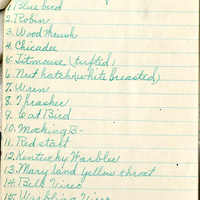 1. Blue bird
2. Robin
3. Wood thrush
4. Chicadee
5. Titmouse (tufted)
6. Nut hatch (white breasted)
7. Wren
8. Thrasher
9. Cat Bird
10. Mocking B-
11. Red start
12. Kentucky Warbler
13. Mary land yellow throat
14. Bell Vireo
15. Warbling Vireo